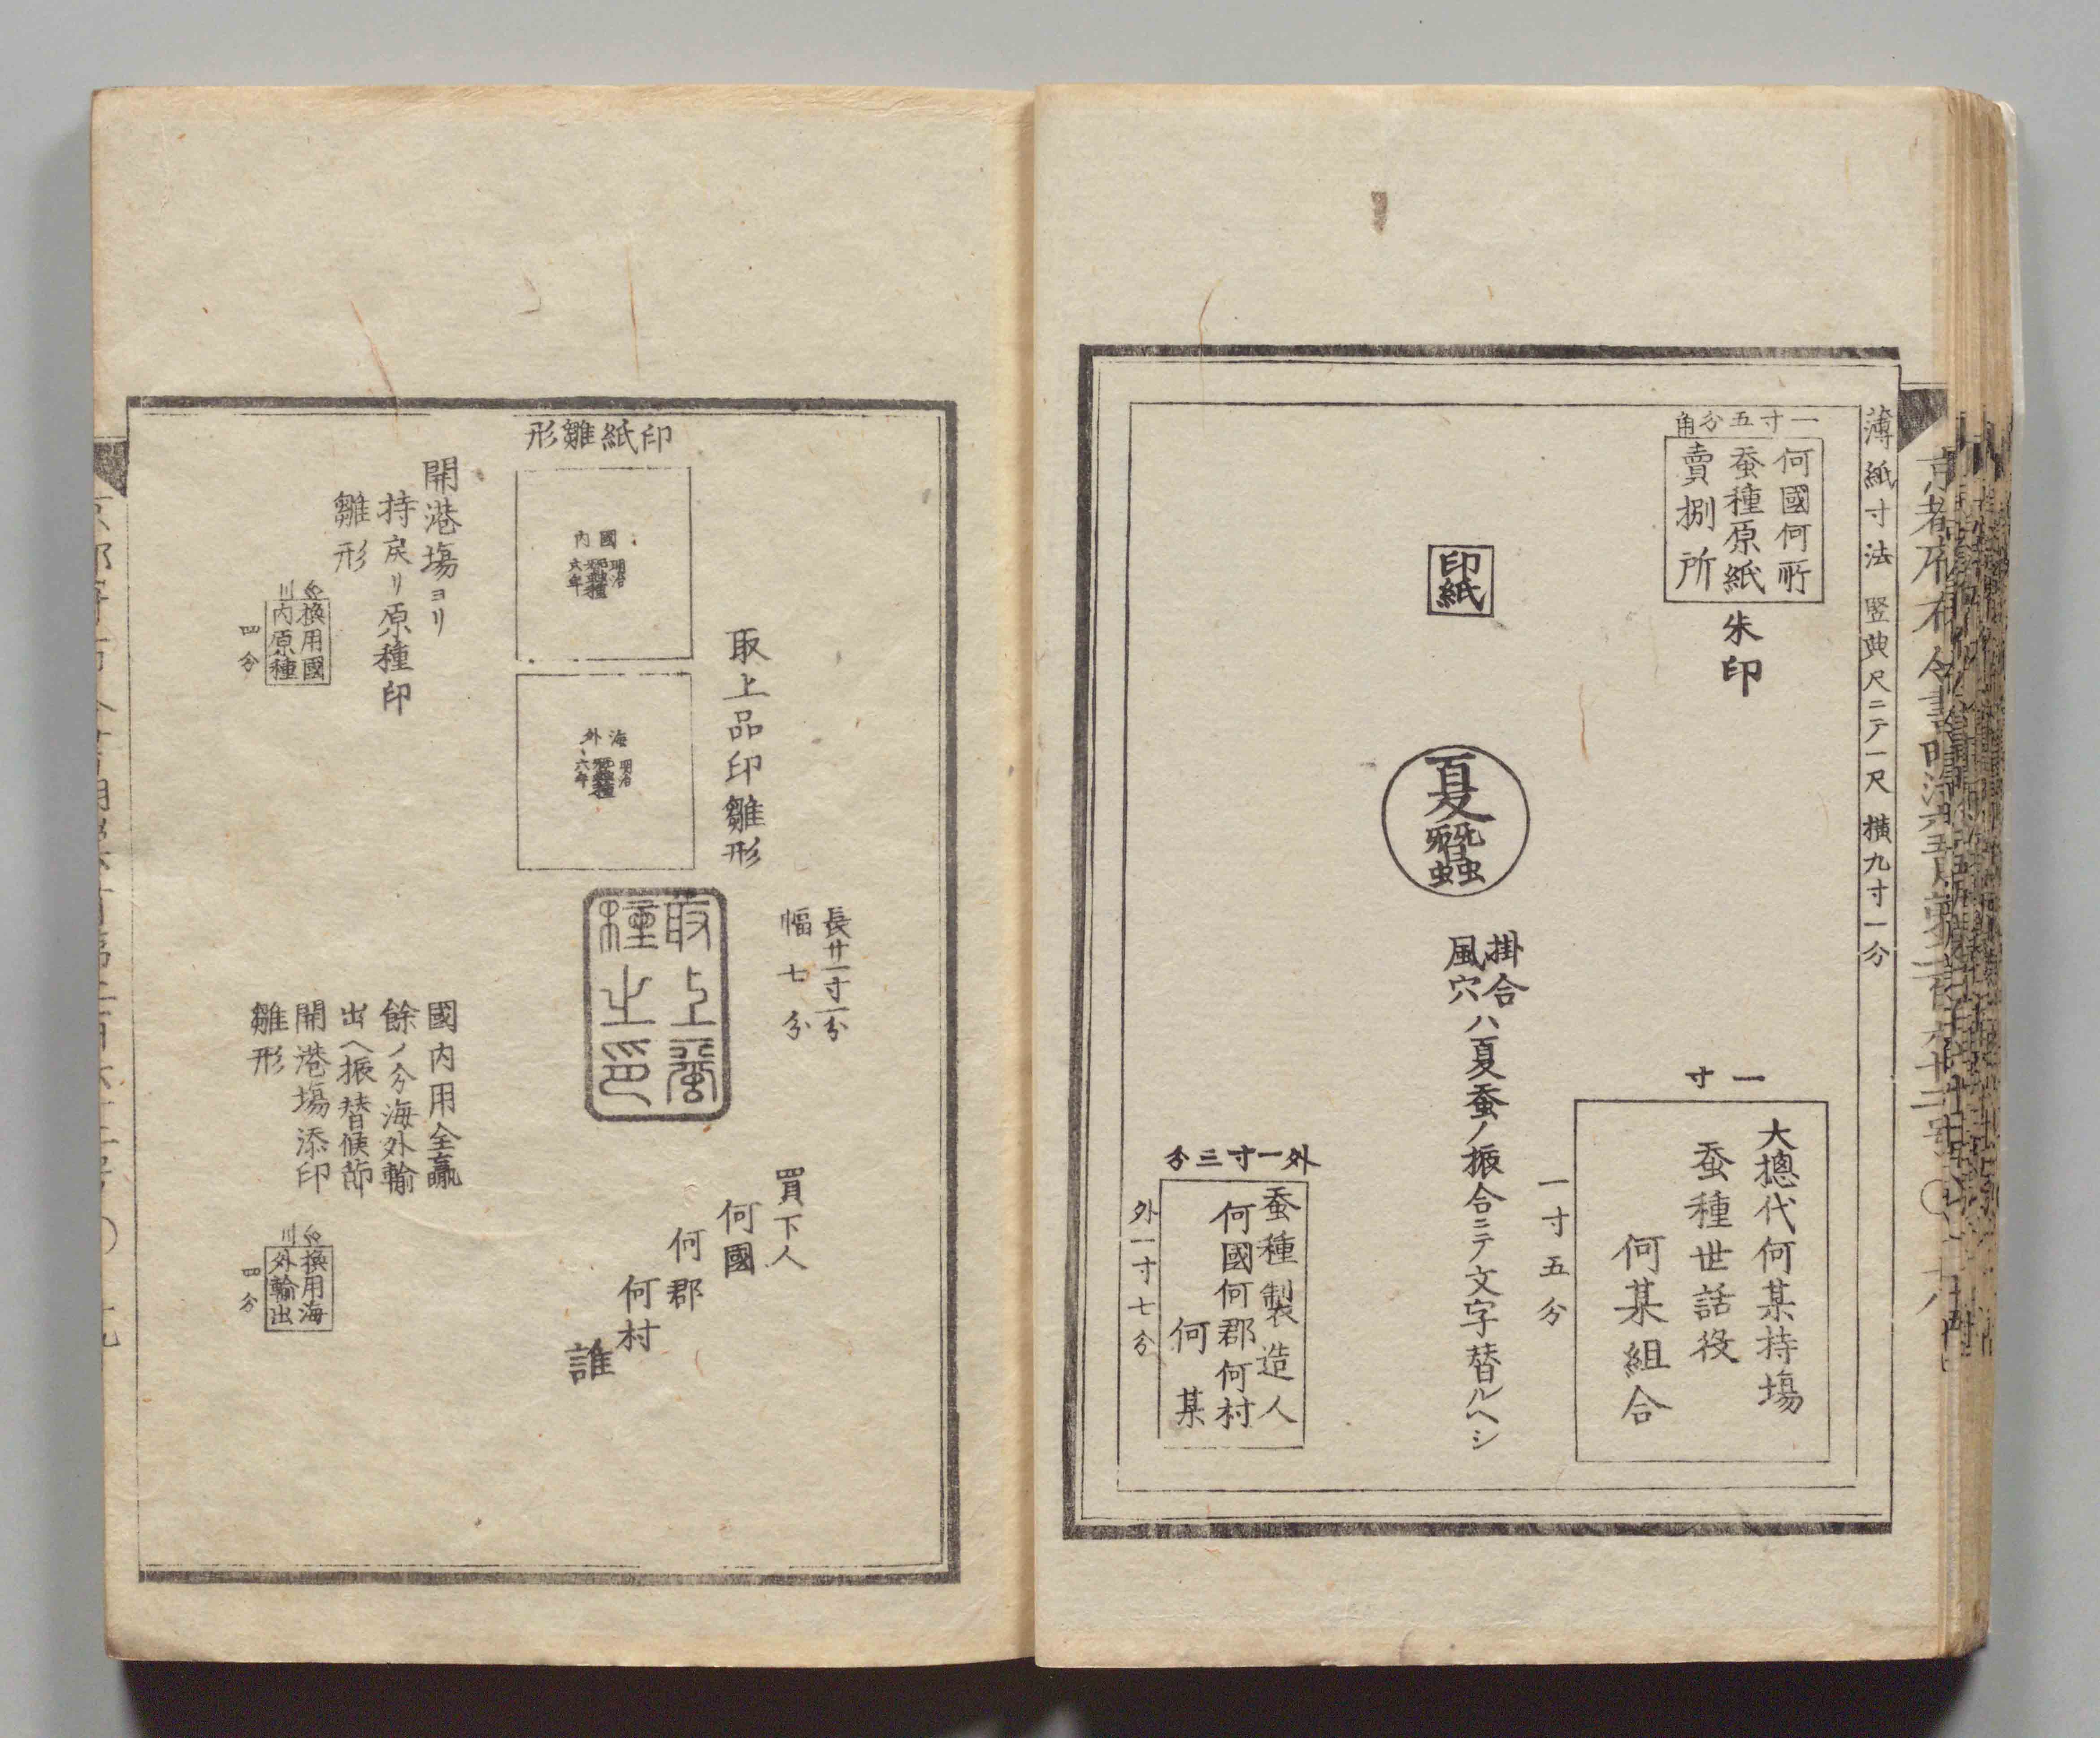 薄紙寸法 竪典尺ニテ一尺 横九寸一分
一寸五分角
何國何所
蚕種原紙
賣捌所
朱印
一寸
大摠代何某持塲
蚕種世話役
何某組合
一寸五分
印紙
夏蠶
掛合
風穴
ハ夏蚕ノ振合ニテ文字替ルヘシ
外一寸三分
蚕種製造人
何國何郡何村
何某
外一寸七分
取上品印雛形
長廿一寸一分
幅七分
取上蚕
種之印
買下人
何國
何郡
何村
誰
印紙雛形
國内
明治
六年
海外
明治
六年
開港塲ヨリ
持戻リ原種印
雛形
換用國
内原種
四分
國内用全贏
餘ノ分海外輸
出ヘ振替候節
開港塲添印
雛形
換用海
外輸出
四分